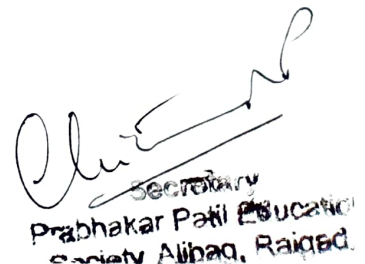 Secretary
Prabhakar Patil Education
Society Alibag, Raigad.